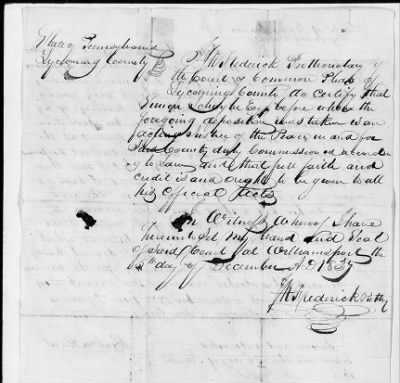 State of Pennsylvania
Lycoming County
I Frederick Prothonotary of
the Court of Common Pleas of
Lycoming County do certify that
Esq before whom the
foregoing deposition was taken is an
acting Justice of the Peace in and for
said County duly Commissioned according
g to Law and that full faith and
credit is and ought to be given to all
his Official Acts
In Witness Whereof I have
hereunto set my hand and Seal
of said Court at Williamsport the
5th day of December AD 18
Frederick Prothy